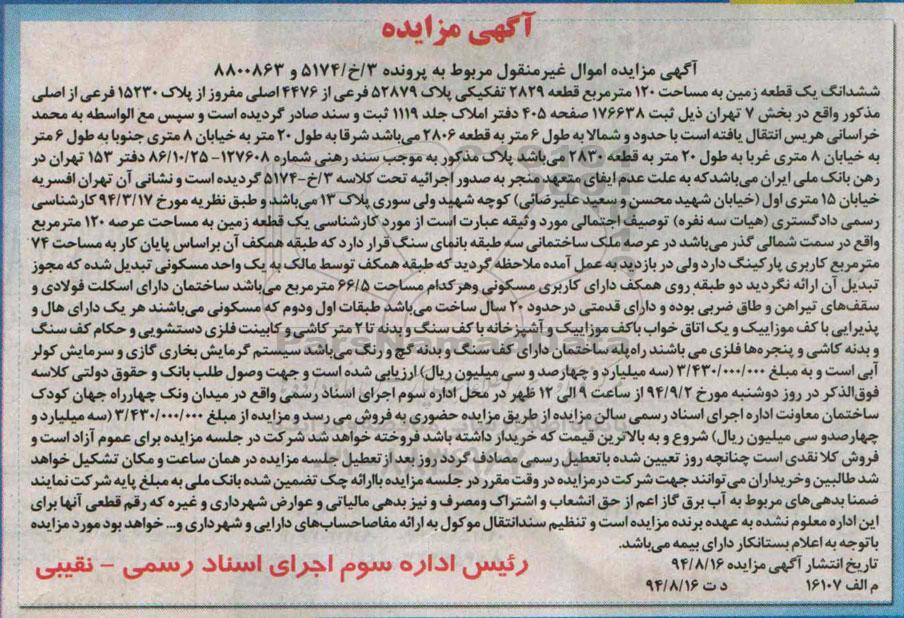 آگهی مزایده
آگهی مزایده اموال غیرمنقول مربوط به پرونده ۳/خ/۵۱۷۴ و ۸۸۰۰۸۶۳
ششدانگ یک قطعه زمین به مساحت ۱۲۰ مترمربع قطعه ۲۸۲۹ تفکیکی پلاک ۵۲۸۷۹ فرعی از ۴۴۷۶ اصلی مفروز از پلاک ۱۵۲۳۰ فرعی از اصلی
مذکور واقع در بخش ۷ تهران ذیل ثبت ۱۷۶۶۳۸ صفحه ۴۰۵ دفتر املاک جلد ۱۱۱۹ ثبت و سند صادر گردیده است و سپس مع الواسطه به محمد
خراسانی هریس انتقال یافته است با حدود و شمالا به طول ۶ متر به قطعه ۲۸۰۶ می‌باشد شرقا به طول ۲۰ متر به خیابان ۸ متری جنوبا به طول ۶ متر
به خیابان ۸ متری غربا به طول ۲۰ متر به قطعه ۲۸۳۰ می‌باشد پلاک مذکور به موجب سند رهنی شماره ۱۲۷۶۰۸- ۸۶/۱۰/۲۵ دفتر ۱۵۳ تهران در
رهن بانک ملی ایران می‌باشدکه به علت عدم ایفای متعهد منجر به صدور اجرائیه تحت کلاسه ۳/خ-۵۱۷۴ گردیده است و نشانی آن تهران افسریه
خیابان ۱۵ متری اول (خیابان شهید محسن و سعید علیرضائی) کوچه شهید ولی سوری پلاک ۱۳ می‌باشد و طبق نظریه مورخ ۹۴/۳/۱۷ کارشناسی
رسمی دادگستری (هیات سه نفره) توصیف اجتمالی مورد وثیقه عبارت است از مورد کارشناسی یک قطعه زمین به مساحت عرصه ۱۲۰ مترمربع
واقع در سمت شمالی گذر می‌باشد در عرصه ملک ساختمانی سه طبقه بانمای سنگ قرار دارد که طبقه همکف آن براساس پایان کار به مساحت ۷۴
مترمربع کاربری پارکینگ دارد ولی در بازدید به عمل آمده ملاحظه گردید که طبقه همکف توسط مالک به یک واحد مسکونی تبدیل شده که مجوز
تبدیل آن ارائه نگردید دو طبقه روی همکف دارای کاربری مسکونی وهرکدام مساحت ۶۶/۵ مترمربع می‌باشد ساختمان دارای اسکلت فولادی و
سقف‌های تیرآهن و طاق ضربی بوده و دارای قدمتی درحدود ۲۰ سال ساخت می‌باشد طبقات اول ودوم که مسکونی می‌باشند هر یک دارای هال و
پذیرایی با کف موزاییک و یک اتاق خواب باکف موزاییک و آشپزخانه با کف سنگ و بدنه تا ۲ متر کاشی و کابینت فلزی دستشویی و حکام کف سنگ
و بدنه کاشی و پنجره‌ها فلزی می باشند راه‌پله ساختمان دارای کف سنگ و بدنه گچ و رنگ می‌باشد سیستم گرمایش بخاری گازی و سرمایش کولر
آبی است و به مبلغ ۳/۴۳۰/۰۰۰/۰۰۰ (سه میلیارد و چهارصد و سی میلیون ریال) ارزیابی شده است و جهت وصول طلب بانک و حقوق دولتی کلاسه
فوق‌الذکر در روز دوشنبه مورخ ۹۴/۹/۲ از ساعت ۹ الی ۱۲ ظهر در محل اداره سوم اجرای اسناد رسمی واقع در میدان ونک چهارراه جهان کودک
ساختمان معاونت اداره اجرای اسناد رسمی سالن مزایده از طریق مزایده حضوری به فروش می رسد و مزایده از مبلغ ۳/۴۳۰/۰۰۰/۰۰۰ (سه میلیارد و
چهارصدو سی میلیون ریال) شروع و به بالاترین قیمت که خریدار داشته باشد فروخته خواهد شد شرکت در جلسه مزایده برای عموم آزاد است و
فروش کلا نقدی است چنانچه روز تعیین شده باتعطیل رسمی مصادف گردد روز بعد از تعطیل جلسه مزایده در همان ساعت و مکان تشکیل خواهد
شد طالبین وخریداران می‌توانند جهت شرکت درمزایده در وقت مقرر در جلسه مزایده باارائه چک تضمین شده بانک ملی به مبلغ پایه شرکت نمایند
ضمنا بدهی‌های مربوط به آب برق گاز اعم از حق انشعاب و اشتراک ومصرف و نیز بدهی مالیاتی و عوارض شهرداری و غیره که رقم قطعی آنها برای
این اداره معلوم نشده به عهده برنده مزایده است و تنظیم سندانتقال موکول به ارائه مفاصاحساب‌های دارایی و شهرداری و... خواهد بود مورد مزایده
باتوجه به اعلام بستانکار دارای بیمه می‌باشد.
تاریخ انتشار آگهی مزایده ۹۴/۸/۱۶
رئیس اداره سوم اجرای اسناد رسمی - نقیبی
م الف ۱۶۱۰۷ د ت ۹۴/۸/۱۶
ParsNamadData